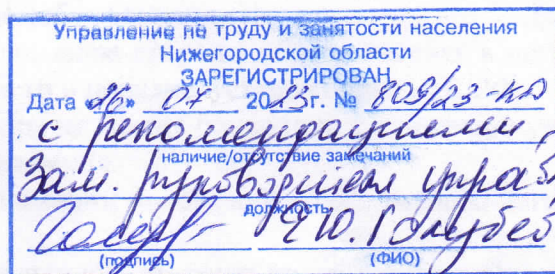 Управление по труду и занятости населения
Нижегородской области
ЗАРЕГИСТРИРОВАН
Дата «26» 07 2023г. № 809/23-КД
с рекомендациями
наличие/отсутствие замечаний
Зам. руководителя управ
должность
Голубев
(подпись) (ФИО)